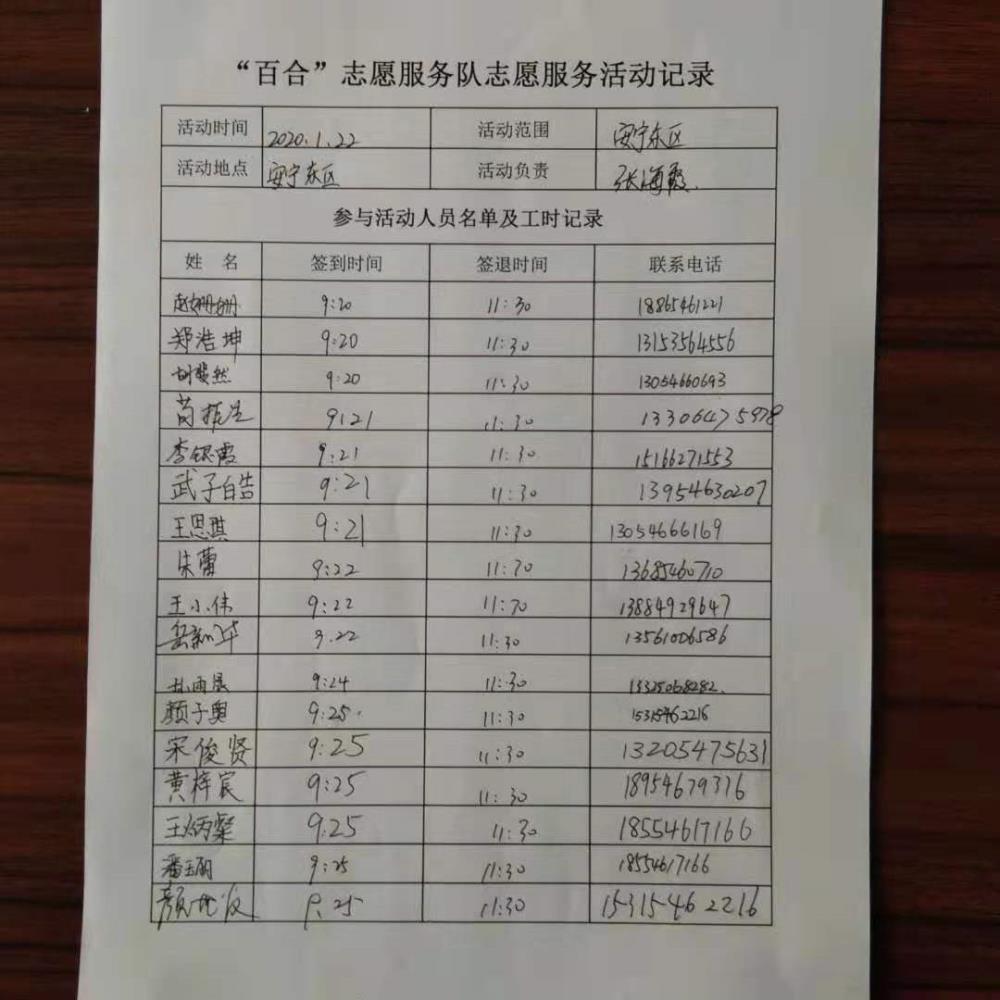 “百合”志愿服务队志愿服务活动记录
活动时间 2020.1.22 活动范围 安宁东区
活动地点 安宁东区 活动负责 张海霞.
参与活动人员名单及工时记录
姓 名 签到时间 签退时间 联系电话
赵姗姗 9:20 11:30 18865461221
郑浩坤 9:20 11:30 13153564556
胡斐然 9:20 11:30 13054660693
9:21 11:30 13306475978
李银霞 9:21 11:30 15166271553
武子皓 9:21 11:30 13954630207
王思琪 9:21 11:30 13054666169
朱蕾 9:22 11:30 13685460710
王小伟 9:22 11:30 13884929647
岳新华 9.22 11:30 13561006586
9:24 11:30
颜子奥 9:25. 11:30 15315462216
宋俊贤 9:25 11:30 13205475631
黄梓宸 9:25 11:30 18954679376
王炳粲 9:25 11:30 18554617166
潘玉丽 9:25 11:30 18554617166
9:25 11:30 15315462216